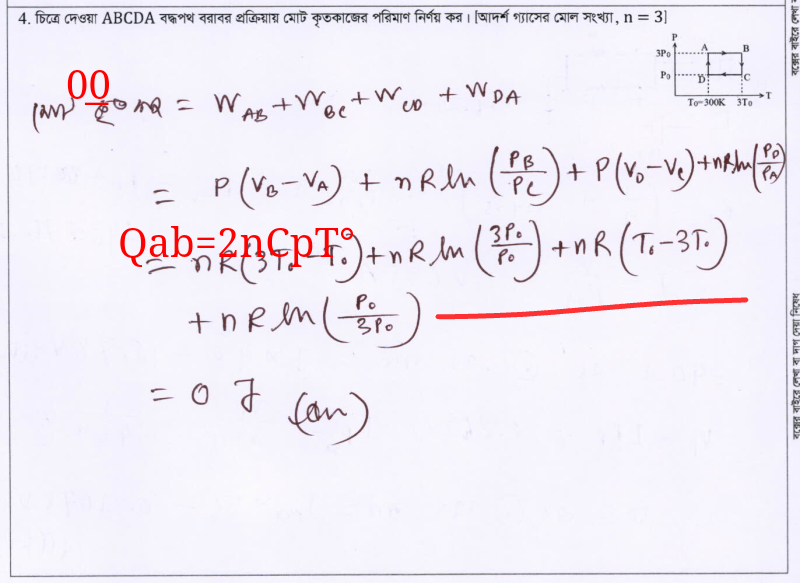 4. চিত্রে দেওয়া ABCDA বদ্ধপথ বরাবর প্রক্রিয়ায় মোট কৃতকাজের পরিমাণ নির্ণয় কর। [আদর্শ গ্যাসের মোল সংখ্যা, n = 3]
P
3P₀ A B
P₀ D C
T₀=300K 3T₀ T
00
= W_AB + W_BC + W_CD + W_DA
= P(V_B - V_A) + nR ln (P_B/P_C) + P(V_D - V_C) + nR ln (P_D/P_A)
Qab=2nCpT°
= nR(3T₀ - T₀) + nR ln (3P₀/P₀) + nR (T₀ - 3T₀)
+ nR ln (P₀/3P₀)
= 0 J (Ans)
বক্সের বাইরে লেখা বা দাগ দেয়া নিষেধ